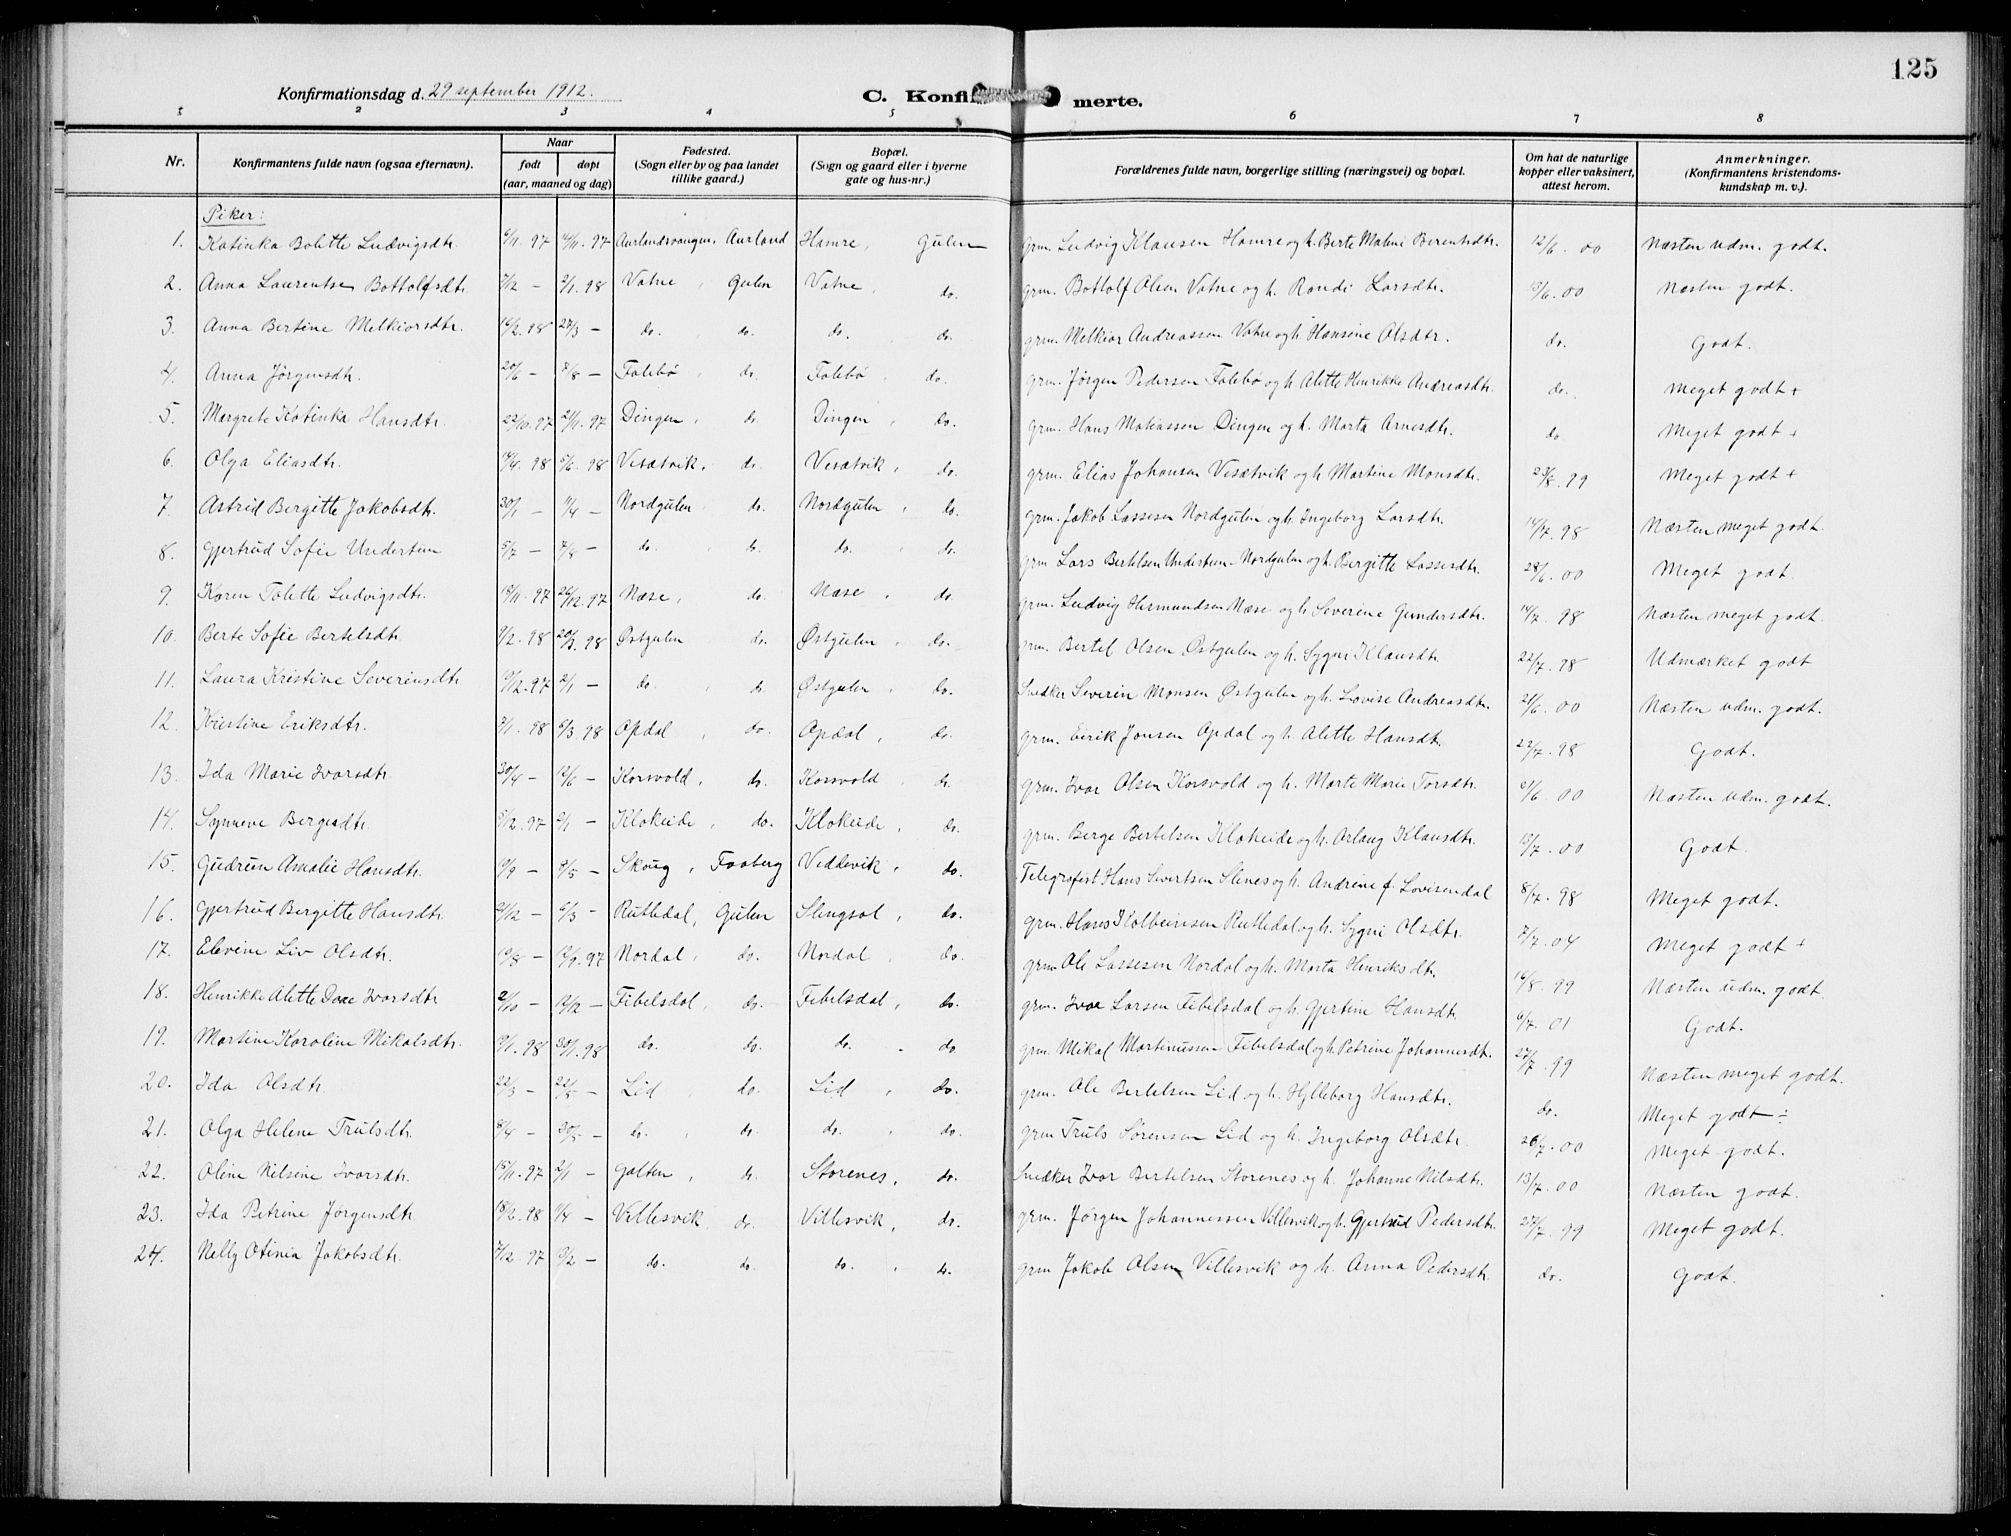 125
Konfirmationsdag d. 29 september 1912.
C. Konfirmerte.
1 2 3 4 5 6 7 8
Nr. Konfirmantens fulde navn (ogsaa efternavn). Naar født døpt (aar, maaned og dag) Fødested. (Sogn eller by og paa landet tillike gaard.) Bopæl. (Sogn og gaard eller i byerne gate og hus-nr.) Forældrenes fulde navn, borgerlige stilling (næringsvei) og bopæl. Om hat de naturlige kopper eller vaksinert, attest herom. Anmerkninger. (Konfirmantens kristendoms-kundskap m. v.).
Piker:
1. Katinka Bolette Ludvigsdtr. 6/11. 97 14/11. 97 Aurlandsvangen, Aurland Hamre, Gulen grm. Ludvig Klausen Hamre og h. Berte Maline Berentsdtr. 12/6. 00 Næsten udm. godt.
2. Anna Laurentse Bottolfsdtr. 7/12 – 2/1. 98 Vatne, Gulen Vatne, do. grm. Bottolf Olsen Vatne og h. Randi Larsdtr. 13/6. 00 Næsten godt.
3. Anna Bertine Melkiorsdtr. 14/2. 98 27/3 – do. do. do. do. grm. Melkior Andreassen Vatne og h. Hansine Olsdtr. do. Godt.
4. Anna Jørgensdtr. 20/6 – 7/8 – Falebø, do. Falebø, do. grm. Jørgen Pedersen Falebø og h. Alette Henrikke Andreasdtr. do. Meget godt +
5. Margrete Katinka Hansdtr. 22/10. 97 21/11. 97 Dingen, do. Dingen, do. grm. Hans Matiassen Dingen og h. Marta Arnesdtr. do Meget godt +
6. Olga Eliasdtr. 14/4. 98 5/6. 98 Visætvik, do. Visætvik, do. grm. Elias Johansen Visætvik og h. Martine Monsdtr. 23/8. 99 Meget godt +
7. Astrid Bergitte Jakobsdtr. 30/1 – 11/4 – Nordgulen, do. Nordgulen, do. grm. Jakob Lassesen Nordgulen og h. Ingeborg Larsdtr. 14/7. 98 Næsten meget godt.
8. Gjertrud Sofie Undertun 5/7 – 7/8 – do. do. do. do. grm. Lars Bertelsen Undertun-Nordgulen og h. Bergitte Lassesdtr. 28/6. 00 Meget godt.
9. Karen Talette Ludvigsdtr. 19/11. 97 26/12. 97 Næse, do. Næse, do. grm. Ludvig Hermundsen Næse og h. Severine Gundersdtr. 14/7. 98 Næsten meget godt.
10. Berte Sofie Bertelsdtr. 9/2. 98 20/3. 98 Østgulen do. Østgulen, do. grm. Bertel Olsen Østgulen og h. Sygni Klausdtr. 22/7. 98 Udmærket godt
11. Laura Kristine Severinsdtr. 9/12. 97 2/1 – do. do. Østgulen, do. Snedker Severin Monsen Østgulen og h. Lovise Andreasdtr. 21/6. 00 Næsten udm. godt.
12. Kristine Eriksdtr. 7/1. 98 6/3. 98 Opdal, do. Opdal, do. grm. Eirik Jonsen Opdal og h. Alette Hansdtr. 22/7. 98 Godt.
13. Ida Marie Ivarsdtr. 30/4 – 12/6 – Korsvold, do. Korsvold do. grm. Ivar Olsen Korsvold og h. Marte Marie Torsdtr. 21/6 00 Næsten udm. godt.
14. Synneve Bergesdtr. 5/12. 97 2/1 – Klokeide, do. Klokeide, do. grm. Berge Bertelsen Klokeide og h. Arlaug Klausdtr. 13/7. 00 Godt.
15. Gudrun Amalie Hansdtr. 19/9 – 8/5 – Skoug, Faaberg Veddevik, do. Telegrafist Hans Sivertsen Slenes og h. Andrine f. Lovisendal 8/7. 98 Meget godt.
16. Gjertrud Bergitte Hansdtr. 21/12 – 6/3 – Rutledal, Gulen Slengsol, do. grm. Hans Kolbeinsen Rutledal og h. Sygni Olsdtr. 7/7. 04 Meget godt +
17. Elevine Liv Olsdtr. 19/8 – 12/9. 97 Nordal, do. Nordal, do. grm. Ole Lassesen Nordal og h. Marta Henriksdtr. 16/8. 99 Næsten udm. godt
18. Henrikke Alette Ivarsdtr. 2/10 – 12/12 – Fibelsdal, do. Fibelsdal, do. grm. Ivar Larsen Fibelsdal og h. Gjertine Hansdtr. 6/7. 01 Godt.
19. Martine Karoline Mikalsdtr. 9/1. 98 30/1. 98 do. do. do. do. grm. Mikal Martinussen Fibelsdal og h. Petrine Johannesdtr. 27/7. 99 Næsten meget godt.
20. Ida Olsdtr. 22/3 – 22/5 – Lid, do. Lid, do. grm. Ole Bertelsen Lid og h. Hylleborg Hansdtr. do. Meget godt ÷
21. Olga Helene Trulsdtr. 8/4 – 20/5 – do. do. do. do. grm Truls Sørensen Lid og h. Ingeborg Olsdtr. 26/7. 00 Meget godt.
22. Oline Nilsine Ivarsdtr. 15/11. 97 2/1 – Galten, do. Storenes, do. Snedker Ivar Bertelsen Storenes og h. Johanne Nilsdtr. 13/7. 00 Næsten godt.
23. Ida Petrine Jørgensdtr. 18/2. 98 1/4 – Villesvik do. Villesvik, do. grm. Jørgen Johannessen Villesvik og h. Gjertrud Pedersdtr. 27/7. 99 Meget godt.
24. Nelly Otinia Jakobsdtr. 7/12. 97 2/2 – do. do. do. do. grm Jakob Olsen Villesvik og h. Anna Pedersdtr. do. Godt.